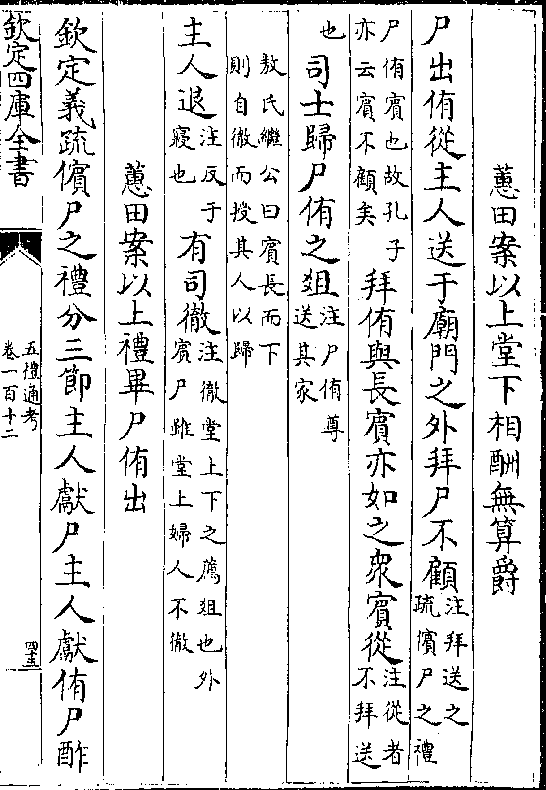 蕙田案以上堂下相酬無算爵
尸出侑從主人送于廟門之外拜尸不顧注拜送之
疏儐尸之禮
尸侑賓也故孔子
亦云賓不顧矣
拜侑與長賓亦如之衆賓從注從者
不拜送
也
司士歸尸侑之俎注尸侑尊
送其家
敖氏繼公曰賓長而下
則自徹而授其人以歸
主人退注反于
寢也
有司徹注徹堂上下之薦俎也外
賓尸雖堂上婦人不徹
蕙田案以上禮畢尸侑出
欽定義疏儐尸之禮分三節主人獻尸主人獻侑尸酢
欽定四庫全書
五禮通考
卷一百十二
四十三